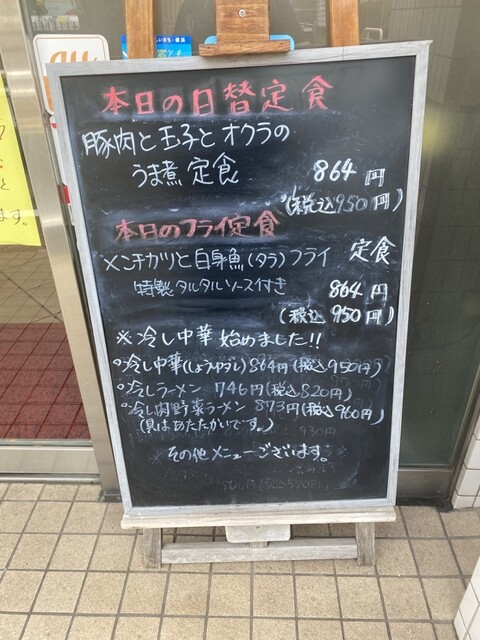 au
本日の日替定食
豚肉と玉子とオクラの
うま煮 定食
864円
(税込950円)
本日のフライ定食
メンチカツと白身魚(タラ)フライ 定食
特製タルタルソース付き 864円
(税込950円)
※冷し中華 始めました!!
○冷し中華(しょうゆダレ)864円(税込950円)
○冷しラーメン 746円(税込820円)
○冷し肉野菜ラーメン 873円(税込960円)
(具はあたたかいです。)
930円
※その他メニューございます。※
と
ます。